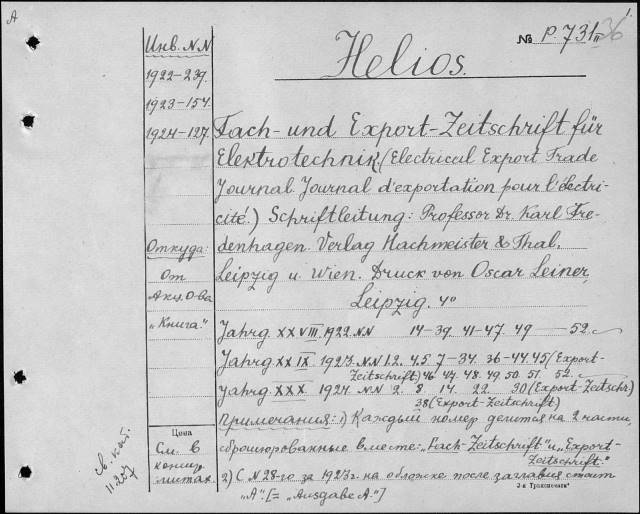 А
№ P. 731 II 36
1
Helios.
Инв. N N
1922–239.
1923–154.
1924–127.
Fach- und Export-Zeitschrift für
Elektrotechnik (Electrical Export Trade
Journal. Journal d'exportation pour l'électri-
cité.) Schriftleitung: Professor Dr. Karl Fre-
denhagen. Verlag Hachmeister & Thal.
Leipzig u. Wien. Druck von Oscar Leiner,
Leipzig. 4°
Откуда:
От
Акц. О-ва
„Книга."
Jahrg. XXVIII. 1922. N N 14–39. 41–47. 49 — 52.
Jahrg. XXIX. 1923. N N 1.2. 4.5. 7–34. 36–44. 45 (Export-
Zeitschrift) 46. 47. 48. 49. 50. 51. 52.
Jahrg. XXX. 1924. N N 2. 8. 14. 22. 30 (Export-Zeitschr.)
38 (Export-Zeitschrift)
Примечания: 1) Каждый номер делится на 2 части,
сброшюрованные вместе: „Fach-Zeitschrift" и „Export-
Zeitschrift."
2) С N 28-го за 1923 г. на обложке после заглавия стоит
„A" [= „Ausgabe A."]
Цена
См. в
конец
листах.
св. кат.
11207